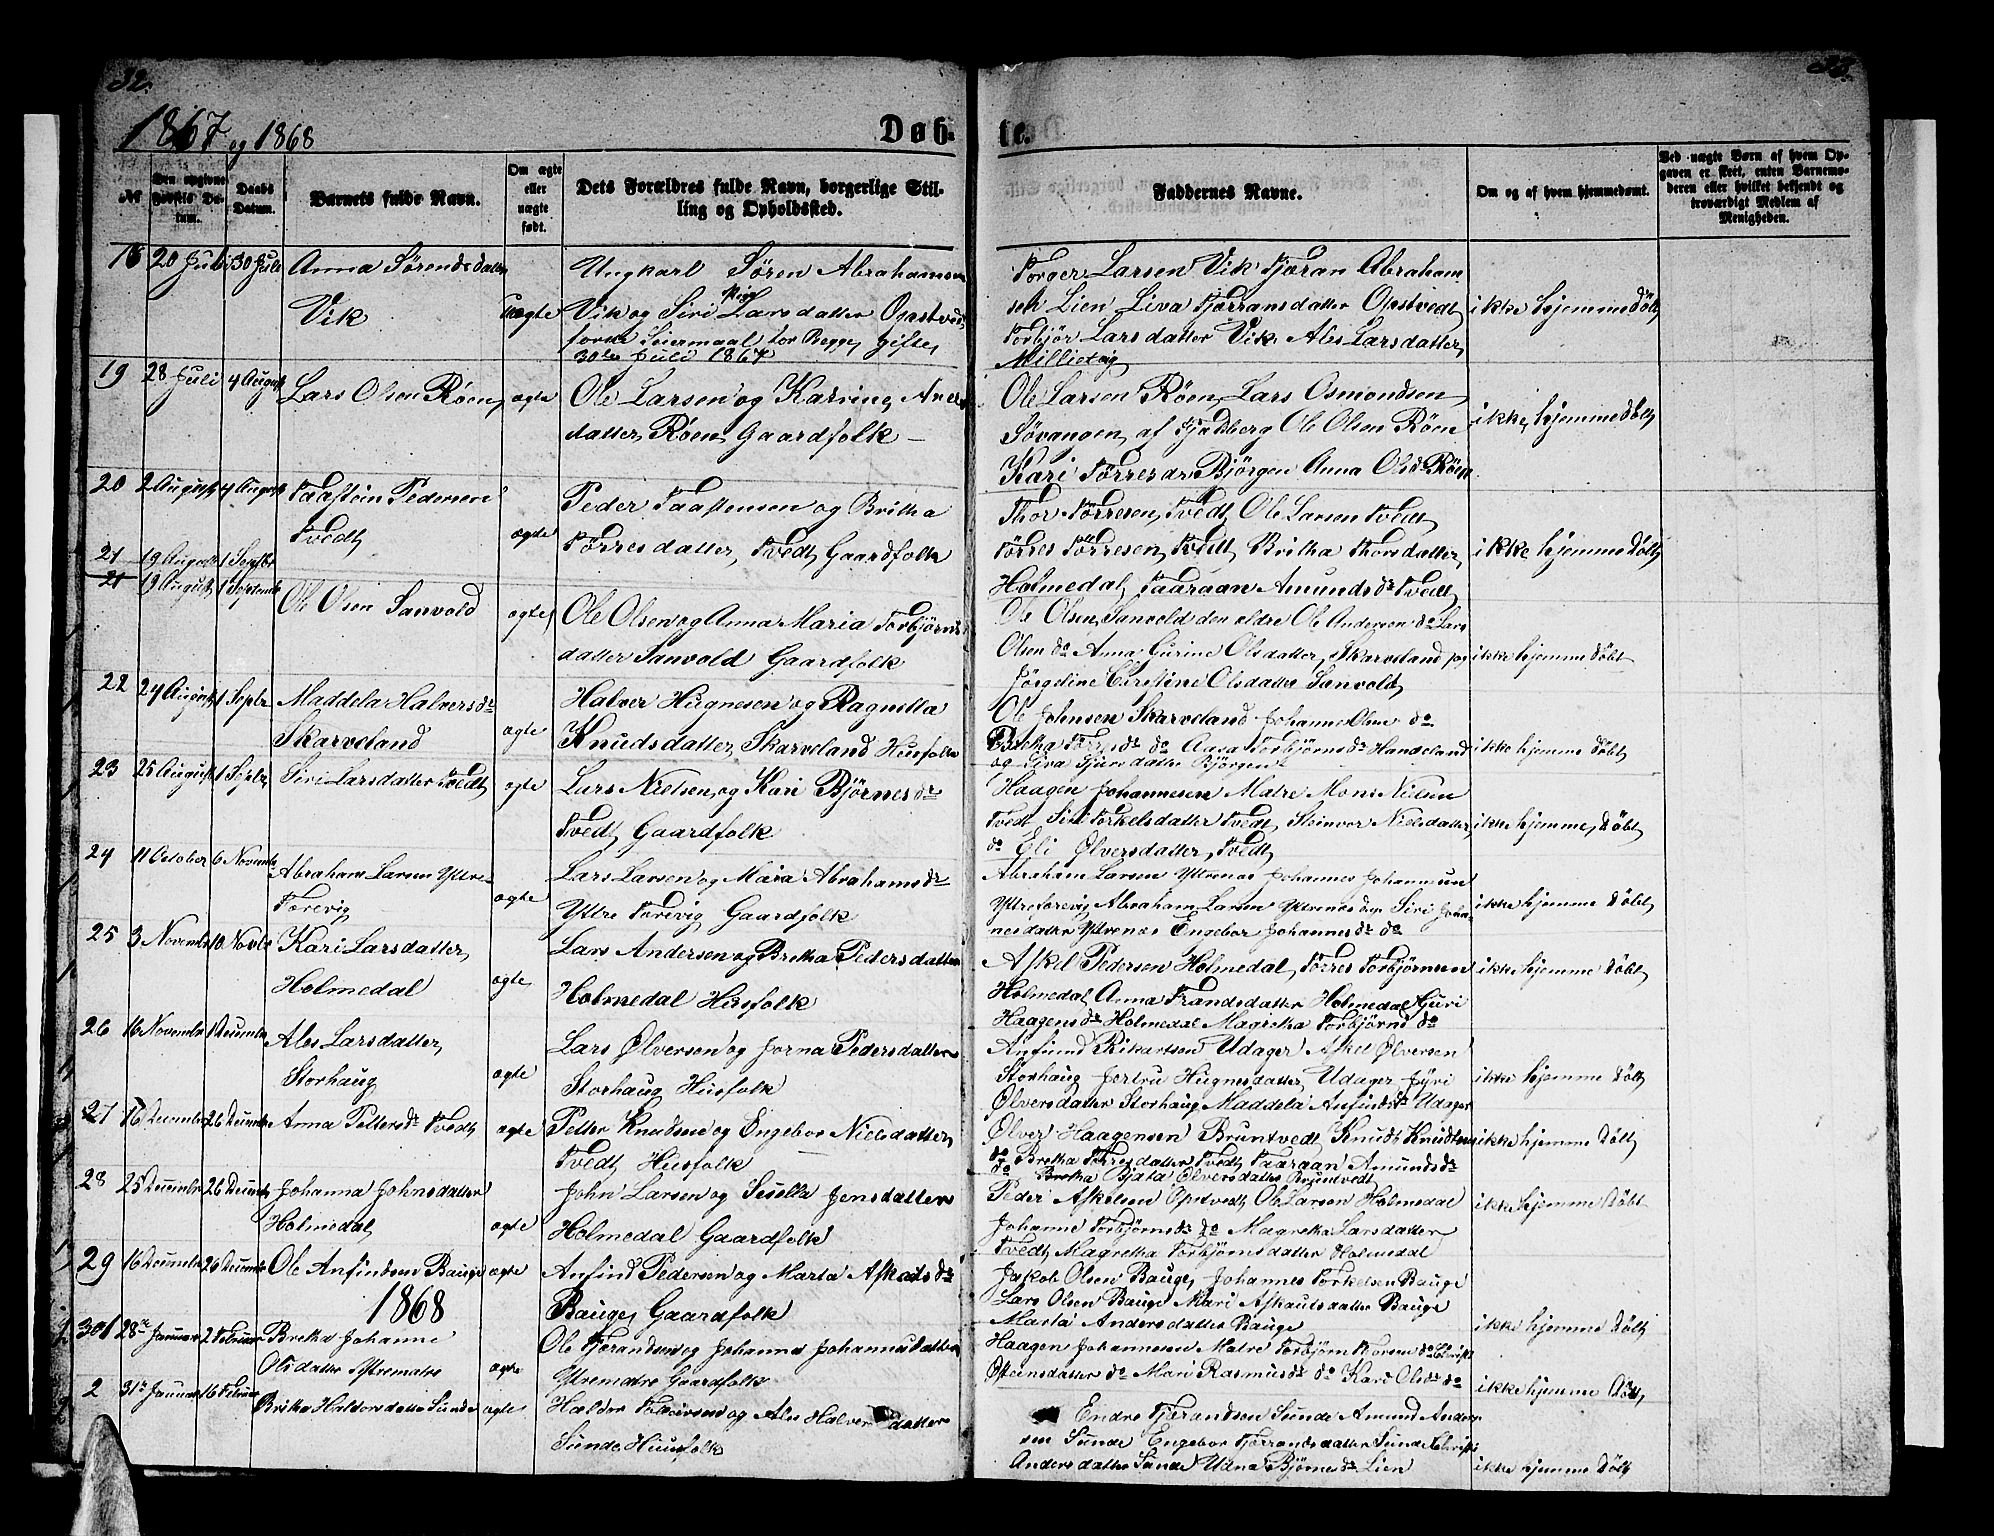 32.
33.
1867 og 1868
Døb-
te.
№
Den opgivne Fødsels Datum.
Daabs Datum.
Barnets fulde Navn.
Om ægte eller uægte født.
Dets Forældres fulde Navn, borgerlige Stilling og Opholdssted.
Faddernes Navne.
Om og af hvem hjemmedøbt.
Ved uægte Børn af hvem Opgaven er skeet, enten Barnemoderen eller hvilket bekjendt og troværdigt Medlem af Menigheden.
18 20 Juli 30 Juli Anna Sørensdatter
Vik
uægte
Ungkarl Søren Abrahamsen
Vik og Pige Siri Larsdatter Opstvedt
første Leiermaal for Begge, gifte
30te Juli 1867
Torger Larsen Vik Tjæran Abraham
sen Lien Liva Tjæransdatter Opstvedt
Torbjør Larsdatter Vik Ales Larsdatter
Millievig
ikke hjemmedøbt
19 28 Juli 4 August Lars Olsen Røen
ægte
Ole Larsen og Karine Anes
datter Røen Gaardfolk
Ole Larsen Røen, Lars Osmondsen
Søvangen af Fjædberg Ole Olsen Røen
Kari Tørresdr Bjørgen Anna Olsdr Røen
ikke hjemmedøbt
20 2 August 4 August Taastein Pedersen
Tvedt
ægte
Peder Taastensen og Britha
Tørresdatter Tvedt Gaardfolk
Thor Tørresen Tvedt Ole Larsen Tvedt
Tørres Tørresen Tvedt Britha Thorsdatter
Holmedal Taaraan Amundsdr Tvedt
ikke hjemmedøbt
21 19 August 1 Septbr
21 19 August 1 Septembr Ole Olsen Sanvold
ægte
Ole Olsen og Anna Maria Torbjørns
datter Sanvold Gaardfolk
Ole Olsen Sanvold den eldre Ole Andersen do Lars
Olsen do Anna Gurine Olsdatter Skarveland og
Jørgeline Cirstine Olsdatter Sanvold
ikke hjemme døbt
22 24 August 1 Septbr Maddela Halversdr
Skarveland
ægte
Halver Hugnesen og Ragnilla
Knudsdatter Skarveland Husfolk
Ole Johnsen Skarveland Johanne Olsen do
Britha Tørresdr do Aasa Torbjørnsdr Handeland
og Siva Tjersdatter Bjørgen
ikke hjemme døbt
23 25 August 1 Septbr Siri Larsdatter Tvedt
ægte
Lars Nielsen og Kari Bjørnesdr
Tvedt Gaardfolk
Haagen Johannesen Matre Mons Nielsen
Tvedt Siri Torkelsdatter Tvedt Steinvor Nielsdatter
do Eli Ølversdatter Tvedt
ikke hjemme døbt
24 11 October 6 Novembr Abraham Larsen Yttre
Torevig
ægte
Lars Larsen og Maria Abrahamsdr
Yttre Torevig Gaardfolk
Abraham Larsen Ytrenæs Johannes Johannesen
Yttretorevig Abraham Larsen Ytrenæs Siri Johan
nesdatter Ytrenæs Engebor Johannesdr do
ikke hjemme døbt
25 3 Novembr 10 Novbr Kari Larsdatter
Holmedal
ægte
Lars Andersen og Bretha Pedersdatter
Holmedal Husfolk
Askel Pedersen Holmedal Tørres Torbjørnsen
Holmedal Anna Frandsdatter Holmedal Guri
Haagensdr Holmedal Magretha Torbjørnsdr do
ikke hjemme døbt
26 16 Novembr 1 Decembr Ales Larsdatter
Storhaug
ægte
Lars Ølversen og Jorna Pedersdatter
Storhaug Husfolk
Anfind Rikartsen Udager Askel Ølversen
Storhaug Jertru Hugnesdatter Udager Jyri
Ølversdatter Storhaug Maddela Anfindsdr Udager
ikke hjemme døbt
27 16 Decembr 26 Decembr Anna Pettersdr Tvedt
ægte
Petter Knudsen og Engebor Nielsdatter
Tvedt Husfolk
Ølver Haagensen Bruntvedt Knudt Knudtsen
do Bretha Tørresdatter Tvedt Taaraan Amundsdr
do Bretha Bjata Ølversdatter Bruntvedt
ikke hjemme døbt
28 25 Decembr 26 Decembr Johanna Johnsdatter
Holmedal
ægte
John Larsen og Sesella Jensdatter
Holmedal Gaardfolk
Peder Askelsen Opstvedt Ole Larsen Holmedal
Johanne Torbjørnsdr do Magretha Larsdatter
Tvedt Magretha Torbjørnsdatter Holmedal
ikke hjemme døbt
29 16 Decembr 26 Decembr Ole Anfindsen Bauge
ægte
Anfind Pedersen og Marta Askutsdr
Bauge Gaardfolk
Jakob Olsen Bauge, Johannes Torkelsen Bauge
Lars Olsen Bauge Mari Askautsdatter Bauge
Marta Andersdatter Bauge
ikke hjemme døbt
1868
1 28de Januar 2 Februar Bretha Johanne
Olsdatter Ytrematre
ægte
Ole Tjærandsen og Johanna Johannesdatter
Ytrematre Gaardfolk
Haagen Johannesen Matre Torbjørn Toresen do Christi
Osteinsdatter do Mari Rasmusdr do Kari Olsdr do
ikke hjemme døbt
2 31te Januar 16 Februar Britha Haldorsdatter Sunde
ægte
Haldor Taarsen og Ales Halversdatter
Sunde Huusfolk
Endre Tjærandsen Sunde Amund Ander
sen Sunde Engebor Tjærandsdatter Sunde Christi
Andersdatter Sunde Udna Bjørnesdr Lien
ikke hjemme døbt